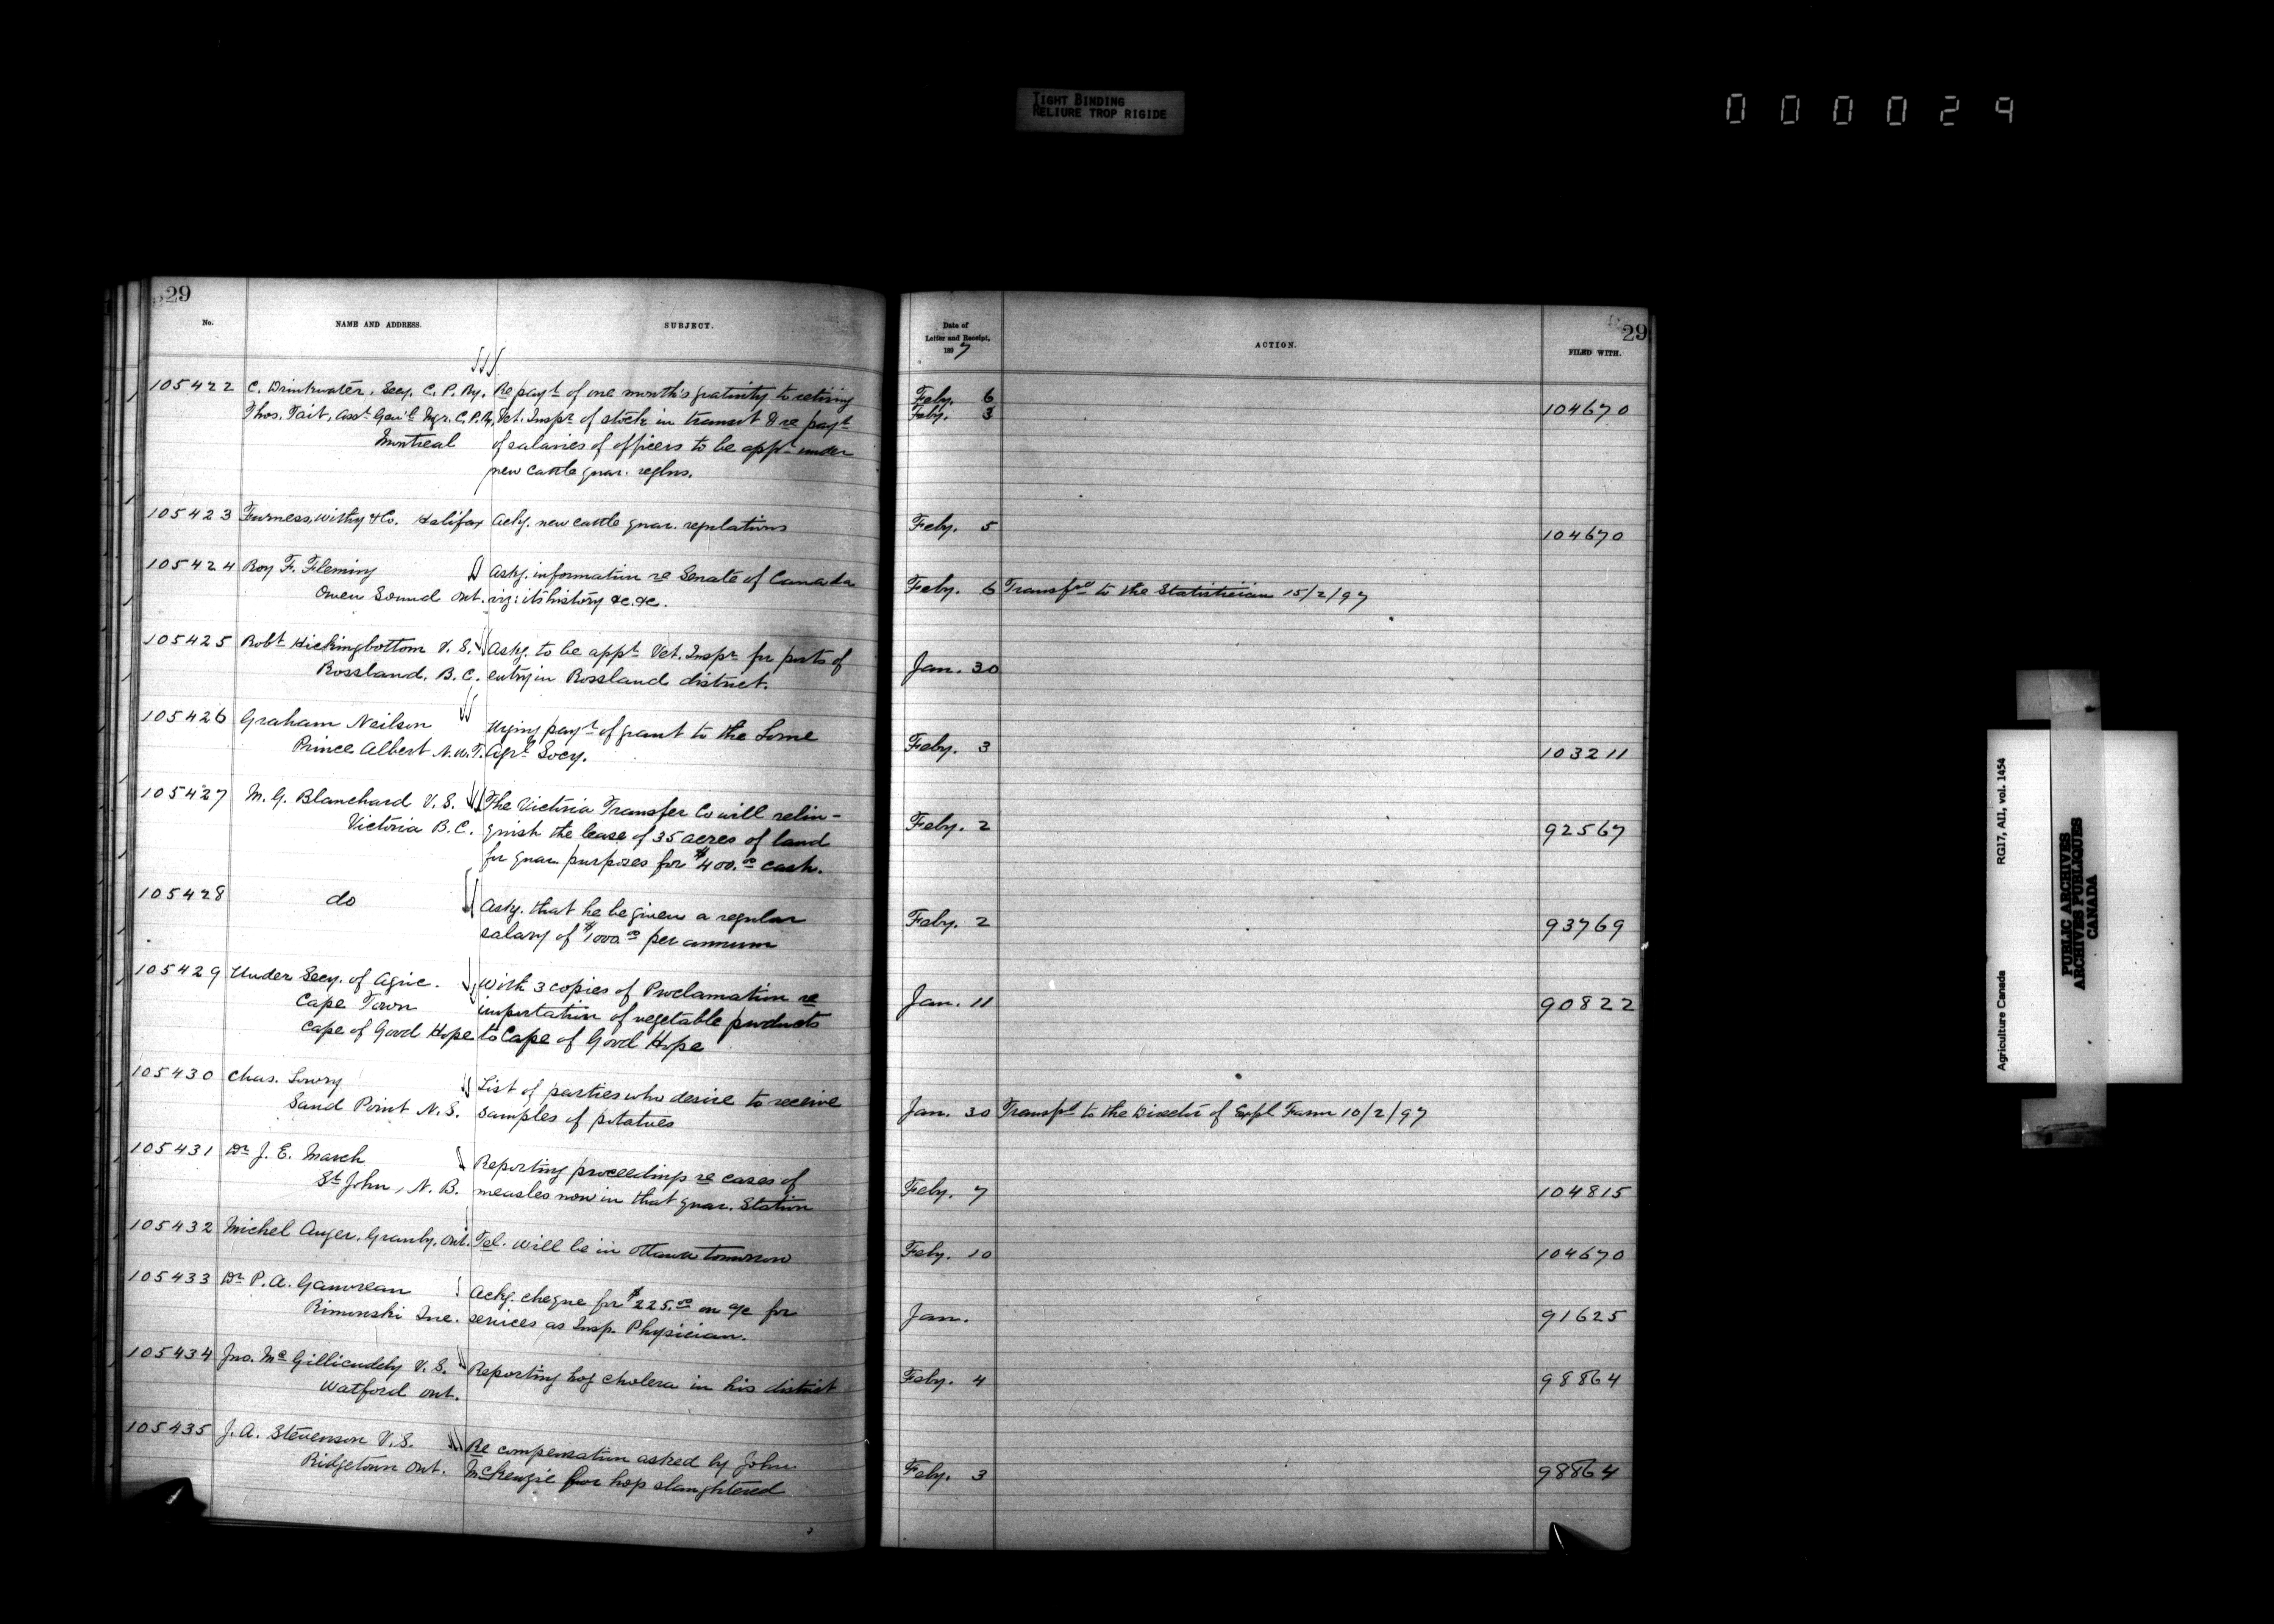 TIGHT BINDING
RELIURE TROP RIGIDE
000029
29
No.
NAME AND ADDRESS.
SUBJECT.
105422 C. Drinkwater, Secy. C. P. Ry. Re payt of one month's gratuity to retiring
Thos. Tait, Asst Gen'l Mgr. C.P.Ry, Vet. Inspr of stock in transit & re payt
Montreal of salaries of officers to be appt under
new cattle quar. reglns.
105423 Furness, Withy & Co. Halifax Ackg. new cattle quar. regulations
105424 Roy F. Fleming Askg. information re Senate of Canada
Owen Sound Ont. viz: its history &c. &c.
105425 Robt Hickingbottom V. S. Askg. to be appt Vet. Inspr for ports of
Rossland, B. C. entry in Rossland district.
105426 Graham Neilson Urging payt of grant to the Lorne
Prince Albert N.W.T. Agrl Socy.
105427 M. G. Blanchard V. S. The Victoria Transfer Co will relin-
Victoria B. C. quish the lease of 35 acres of land
for quar. purposes for $400.00 cash.
105428 do Askg. that he be given a regular
salary of $1000.00 per annum
105429 Under Secy. of Agric. With 3 copies of Proclamation re
Cape Town importation of vegetable products
Cape of Good Hope to Cape of Good Hope
105430 Chas. Lowry List of parties who desire to receive
Sand Point N. S. samples of potatoes
105431 Dr J. E. March Reporting proceedings re cases of
St John, N. B. measles now in that quar. Station
105432 Michel Auger, Granby, Ont. Tel. will be in Ottawa tomorrow
105433 Dr P. A. Gauvreau Ackg. cheque for $225.00 on a/c for
Rimouski Que. services as Insp. Physician.
105434 Jno. McGillicuddy V. S. Reporting hog cholera in his district
Watford Ont.
105435 J. A. Stevenson V. S. Re compensation asked by John
Ridgetown Ont. McKenzie for hogs slaughtered
29
Date of
Letter and Receipt,
1897
ACTION.
FILED WITH.
Feby. 6
Feby. 3 104670
Feby. 5 104670
Feby. 6 Transfd to the Statistician 15/2/97
Jan. 30
Feby. 3 103211
Feby. 2 92567
Feby. 2 93769
Jan. 11 90822
Jan. 30 Transfd to the Director of Expl Farm 10/2/97
Feby. 7 104815
Feby. 10 104670
Jan. 91625
Feby. 4 98864
Feby. 3 98864
Agriculture Canada RG17, AII, vol. 1454
PUBLIC ARCHIVES
ARCHIVES PUBLIQUES
CANADA